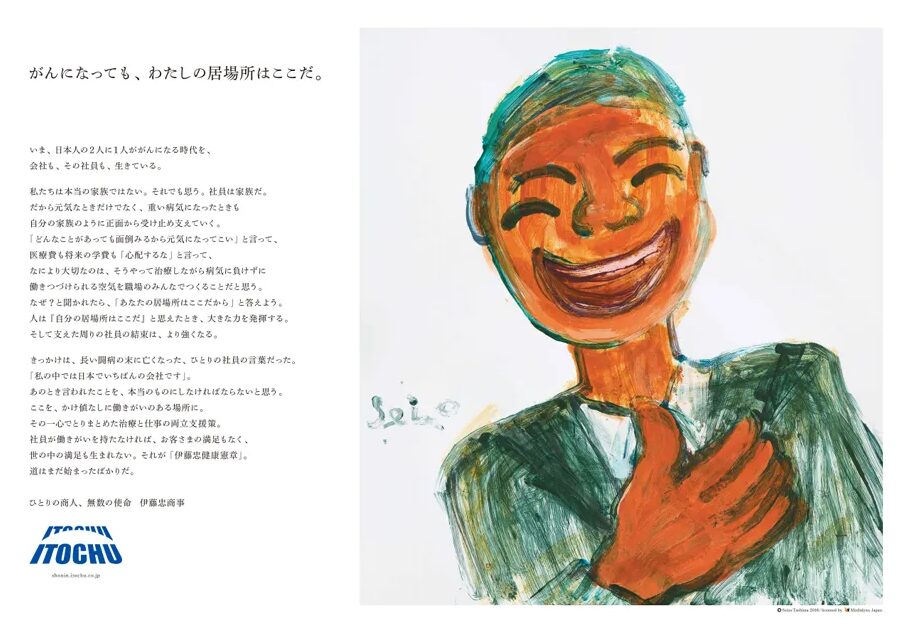 がんになっても、わたしの居場所はここだ。
いま、日本人の2人に1人ががんになる時代を、
会社も、その社員も、生きている。
私たちは本当の家族ではない。それでも思う。社員は家族だ。
だから元気なときだけでなく、重い病気になったときも
自分の家族のように正面から受け止め支えていく。
「どんなことがあっても面倒みるから元気になってこい」と言って、
医療費も将来の学費も「心配するな」と言って、
なにより大切なのは、そうやって治療しながら病気に負けずに
働きつづけられる空気を職場のみんなでつくることだと思う。
なぜ？と聞かれたら、「あなたの居場所はここだから」と答えよう。
人は『自分の居場所はここだ』と思えたとき、大きな力を発揮する。
そして支えた周りの社員の結束は、より強くなる。
きっかけは、長い闘病の末に亡くなった、ひとりの社員の言葉だった。
「私の中では日本でいちばんの会社です」。
あのとき言われたことを、本当のものにしなければならないと思う。
ここを、かけ値なしに働きがいのある場所に。
その一心でとりまとめた治療と仕事の両立支援策。
社員が働きがいを持たなければ、お客さまの満足もなく、
世の中の満足も生まれない。それが「伊藤忠健康憲章」。
道はまだ始まったばかりだ。
ひとりの商人、無数の使命　伊藤忠商事
ITOCHU
ITOCHU
shonin.itochu.co.jp
Seizo
© Seizo Tashima 2018/licensed by Mindsdyou Japan